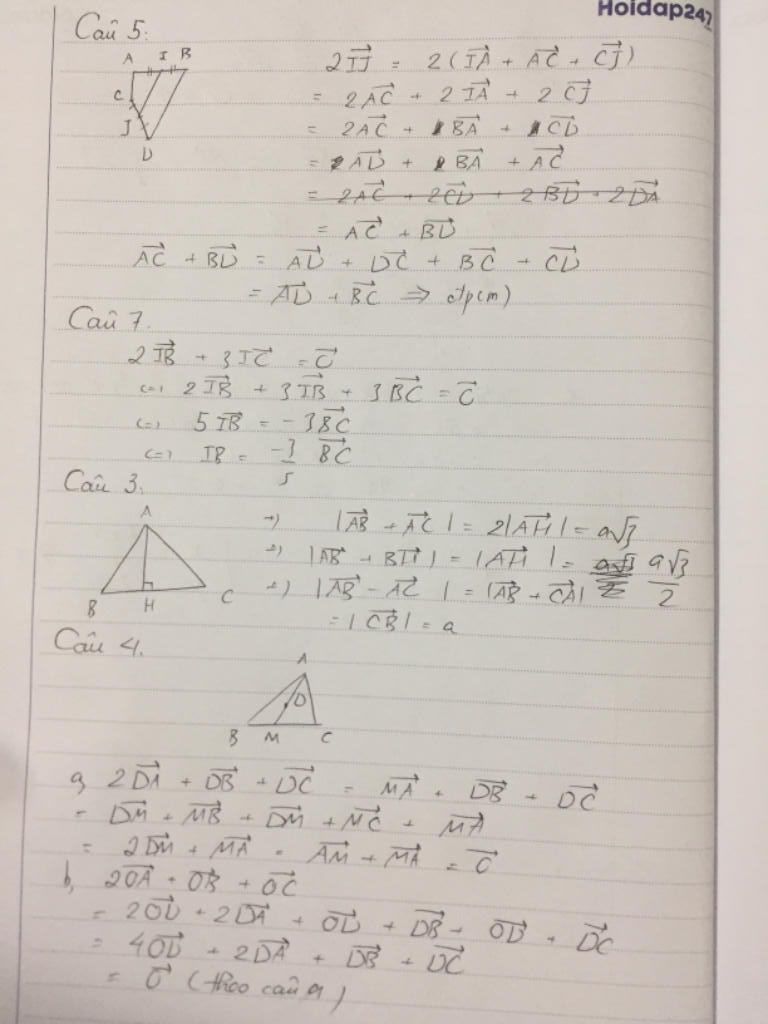 Hoidap247
Câu 5:
A I B
C
J
D
2\vec{IJ} = 2(\vec{IA} + \vec{AC} + \vec{CJ})
= 2\vec{AC} + 2\vec{IA} + 2\vec{CJ}
= 2\vec{AC} + \vec{BA} + \vec{CD}
= \vec{AD} + \vec{BA} + \vec{AC}
= 2\vec{AC} + 2\vec{CD} + 2\vec{BD} + 2\vec{DA}
= \vec{AC} + \vec{BD}
\vec{AC} + \vec{BD} = \vec{AD} + \vec{DC} + \vec{BC} + \vec{CD}
= \vec{AD} + \vec{BC} => đpcm)
Câu 7.
2\vec{IB} + 3\vec{IC} = \vec{O}
<=> 2\vec{IB} + 3\vec{IB} + 3\vec{BC} = \vec{O}
<=> 5\vec{IB} = -3\vec{BC}
<=> IB = \frac{-3}{5} \vec{BC}
Câu 3.
A
B H C
+) |\vec{AB} + \vec{AC}| = 2|\vec{AH}| = a√3
+) |\vec{AB} + \vec{BH}| = |\vec{AH}| = \frac{a√3}{2}
+) |\vec{AB} - \vec{AC}| = |\vec{AB} + \vec{CA}|
= |\vec{CB}| = a
Câu 4.
A
D
B M C
a, 2\vec{DA} + \vec{DB} + \vec{DC} = \vec{MA} + \vec{DB} + \vec{DC}
= \vec{DM} + \vec{MB} + \vec{DM} + \vec{MC} + \vec{MA}
= 2\vec{DM} + \vec{MA} = \vec{AM} + \vec{MA} = \vec{O}
b, 2\vec{OA} + \vec{OB} + \vec{OC}
= 2\vec{OD} + 2\vec{DA} + \vec{OD} + \vec{DB} + \vec{OD} + \vec{DC}
= 4\vec{OD} + 2\vec{DA} + \vec{DB} + \vec{DC}
= \vec{O} (theo câu a)